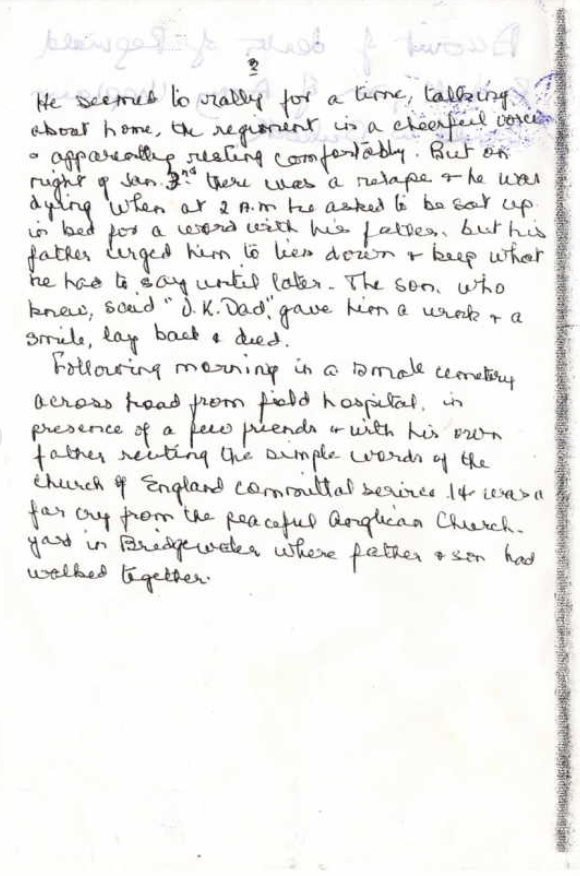 2
He seemed to rally for a time, talking
about home, the regiment in a cheerful voice
& apparently resting comfortably. But on
night of Jan. 3rd there was a relapse & he was
dying when at 2 A.M he asked to be sat up
in bed for a word with his father. but his
father urged him to lien down & keep what
he had to say until later. The son, who
knew, said "O.K. Dad", gave him a wink & a
smile, lay back & died.
Following morning in a small cemetery
across road from field hospital, in
presence of a few friends & with his own
father reciting the simple words of the
Church of England committal service. It was a
far cry from the peaceful Anglican Church-
yard in Bridgewater where father & son had
walked together.